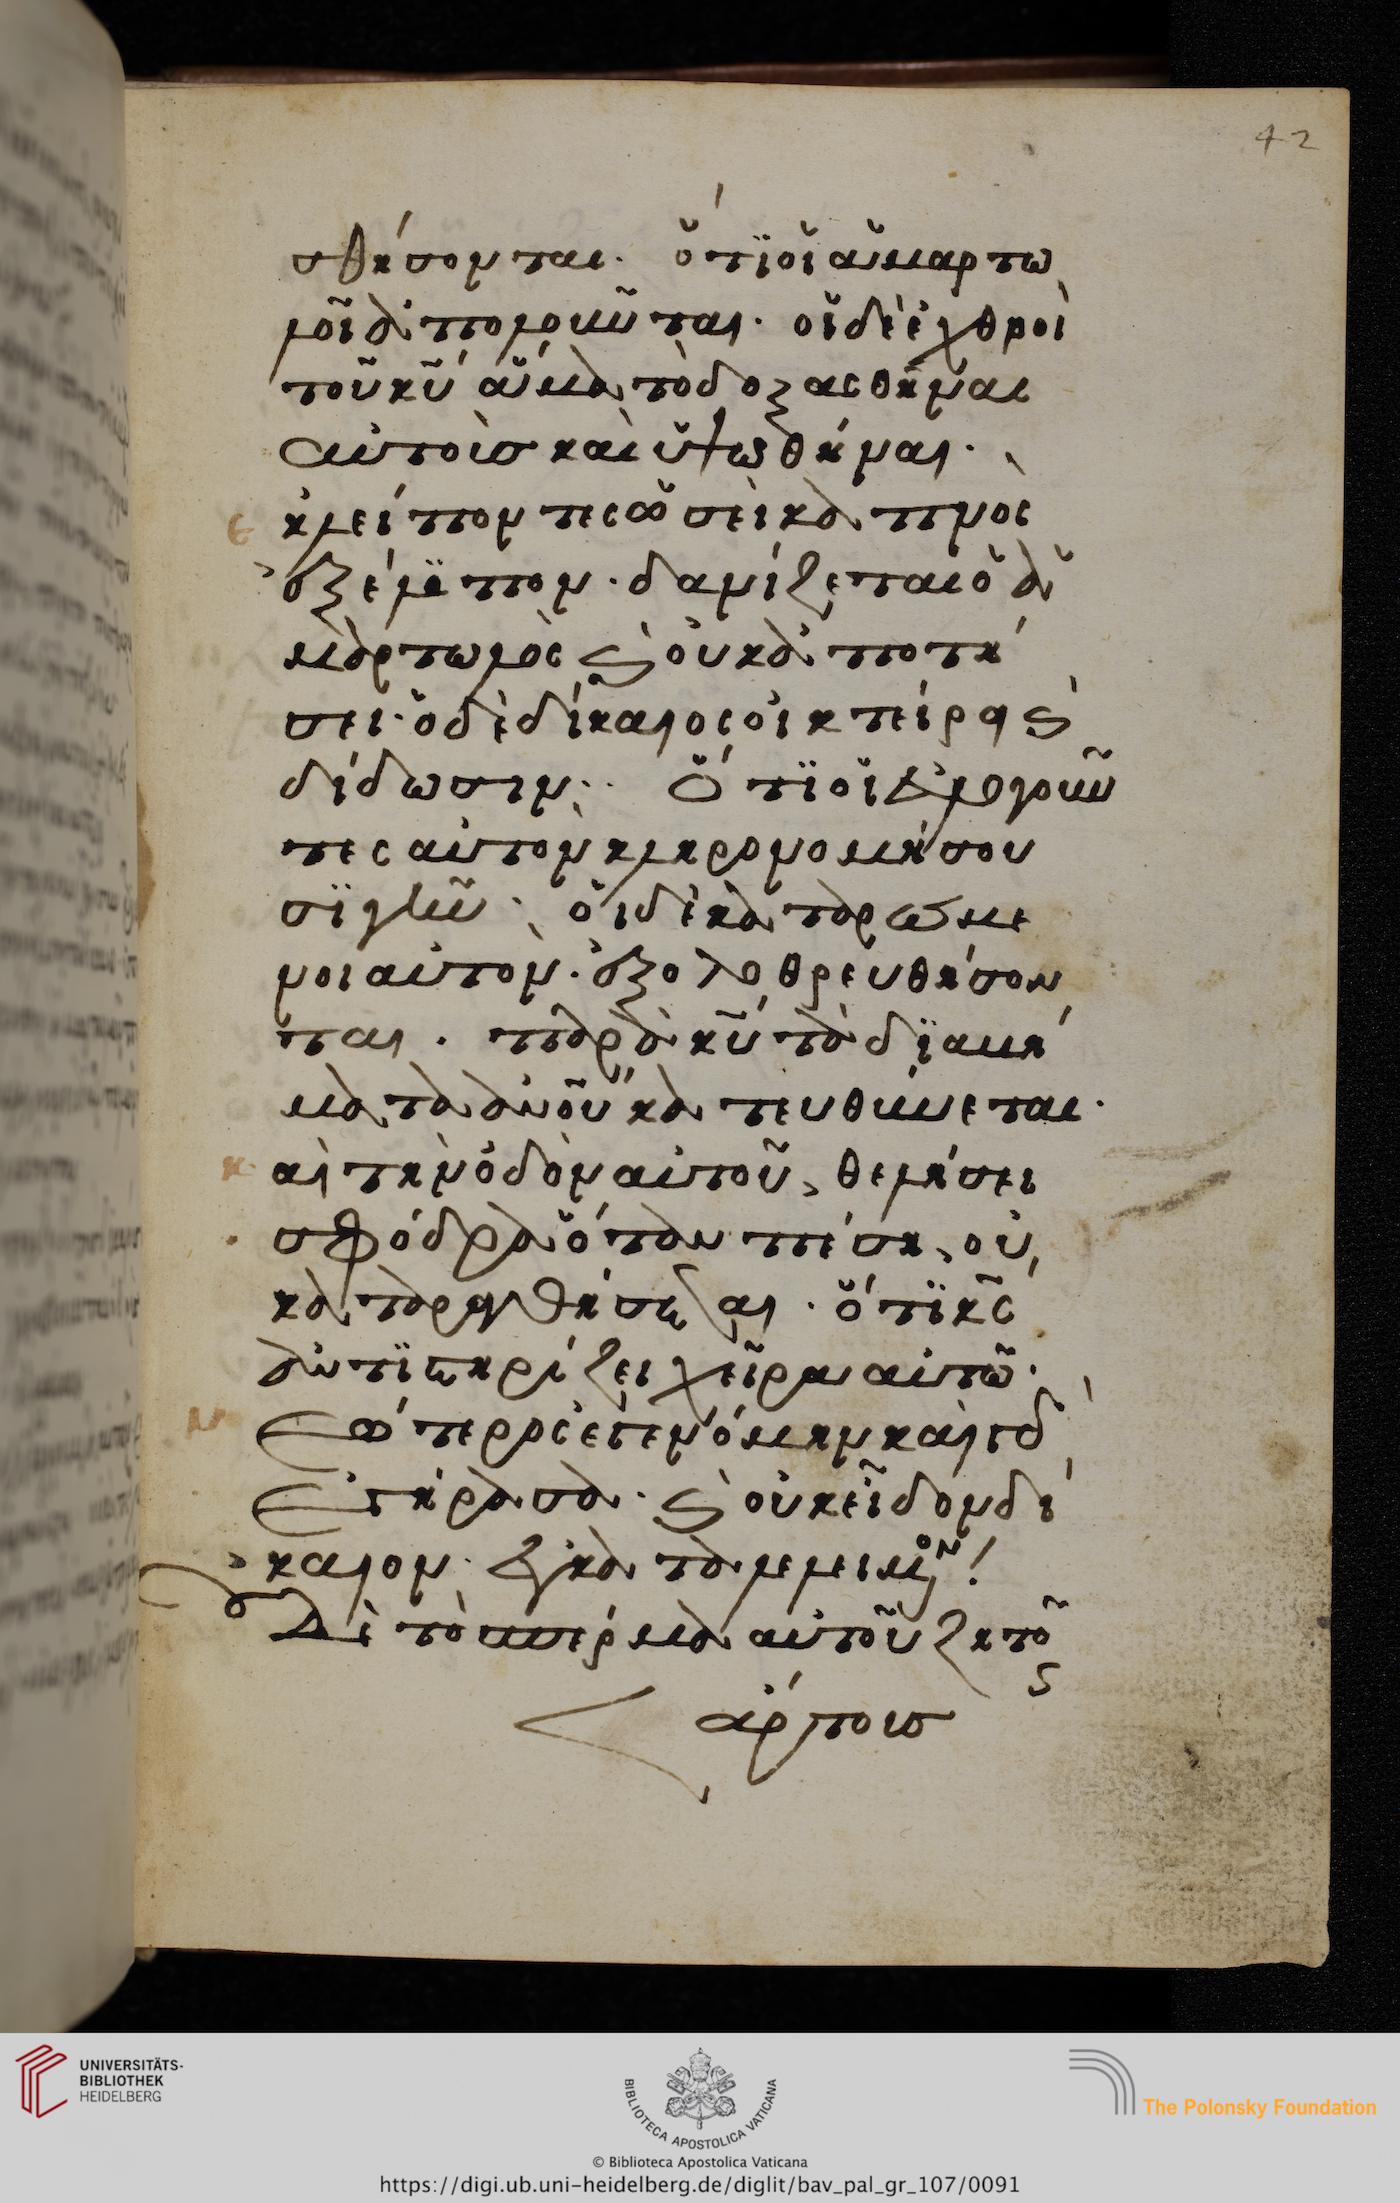 42
σθήσονται. ὅτϊ οἱ ἁμαρτω
λοῖ ἀπολοῦνται. οἱ δὲ ἐχθροὶ
τοῦ κῦ ἅμα τὸ δοξασθῆναι
αὐτοὺσ καὶ ὑψωθῆναι.
ἐκλείποντες ὡσεὶ καπνὸς
ἐξέλϊπον. δανίζεται ὁ ἁ
μαρτωλὸς ϛ οὐκ ἀποτί
σει. ὁ δὲ δίκαιος οἰκτείρει ϛ
δίδωσιν. Ὅτϊ οἱ εὐλογοῦν
τες αὐτὸν κληρονομήσου
σϊ γῆν. οἱ δὲ καταρώμε
νοι αὐτὸν. ἐξολοθρευθήσον
ται. παρὰ κῦ τὰ δϊαβή
ματα ἀνοῦ κατευθύνεται.
καὶ τὴν ὁδὸν αὐτοῦ, θελήσει
σφόδρα ὅταν πέση, οὐ
καταραχθήσεται. ὅτϊ κς
ἀντϊστηρίζει χεῖρα αὐτοῦ.
Νεώτερος ἐγενόμην καὶ γὰρ
ἐγήρασα. ϛ οὐκ εἶδον δί
καιον ἐγκαταλελειμμένον!
Οὐδὲ τὸ σπέρμα αὐτοῦ ζητοῦν
ἄρτουσ
UNIVERSITÄTS-
BIBLIOTHEK
HEIDELBERG
BIBLIOTECA APOSTOLICA VATICANA
The Polonsky Foundation
© Biblioteca Apostolica Vaticana
https://digi.ub.uni-heidelberg.de/diglit/bav_pal_gr_107/0091